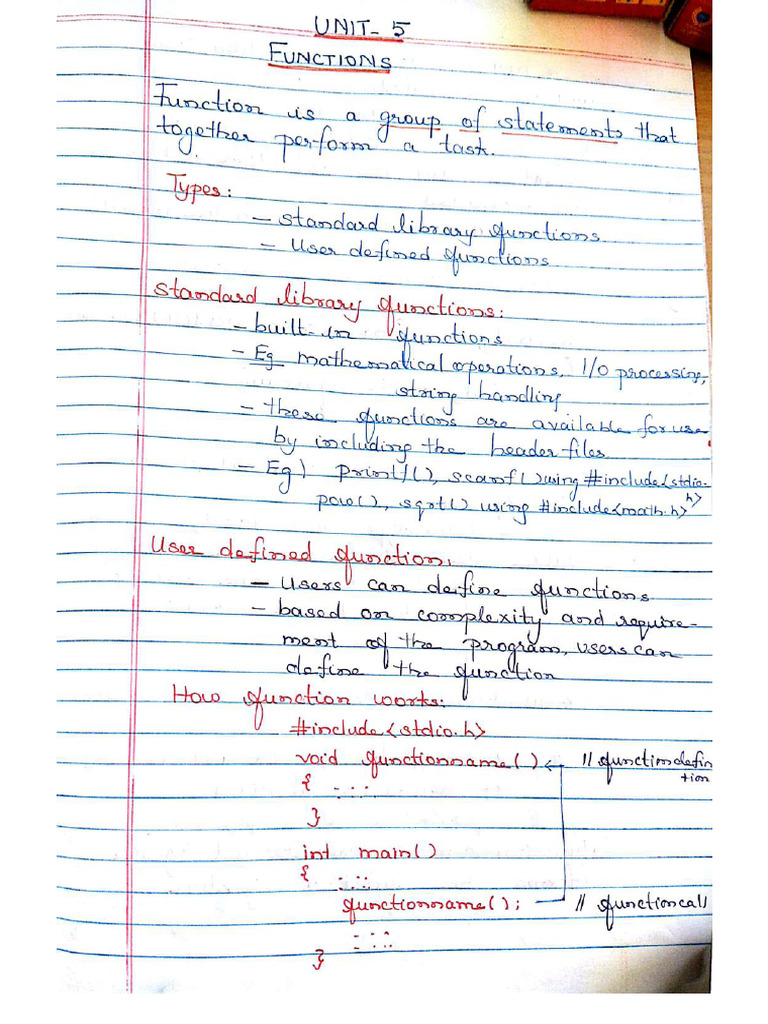 UNIT- 5
FUNCTIONS
Function is a group of statements that
together perform a task.
Types:
- standard library functions
- User defined functions
Standard library functions:
- built-in functions
- Eg mathematical operations, I/O processing,
string handling
- these functions are available for use
by including the header files
- Eg) printf(), scanf() using #include<stdio.
h>
pow(), sqrt() using #include<math.h>
User defined function:
- Users can define functions
- based on complexity and require-
ment of the program, users can
define the function
How function works:
#include<stdio.h>
void functionname() // function defini
tion
{ ....
}
int main()
{ ....
functionname(); // function call
....
}